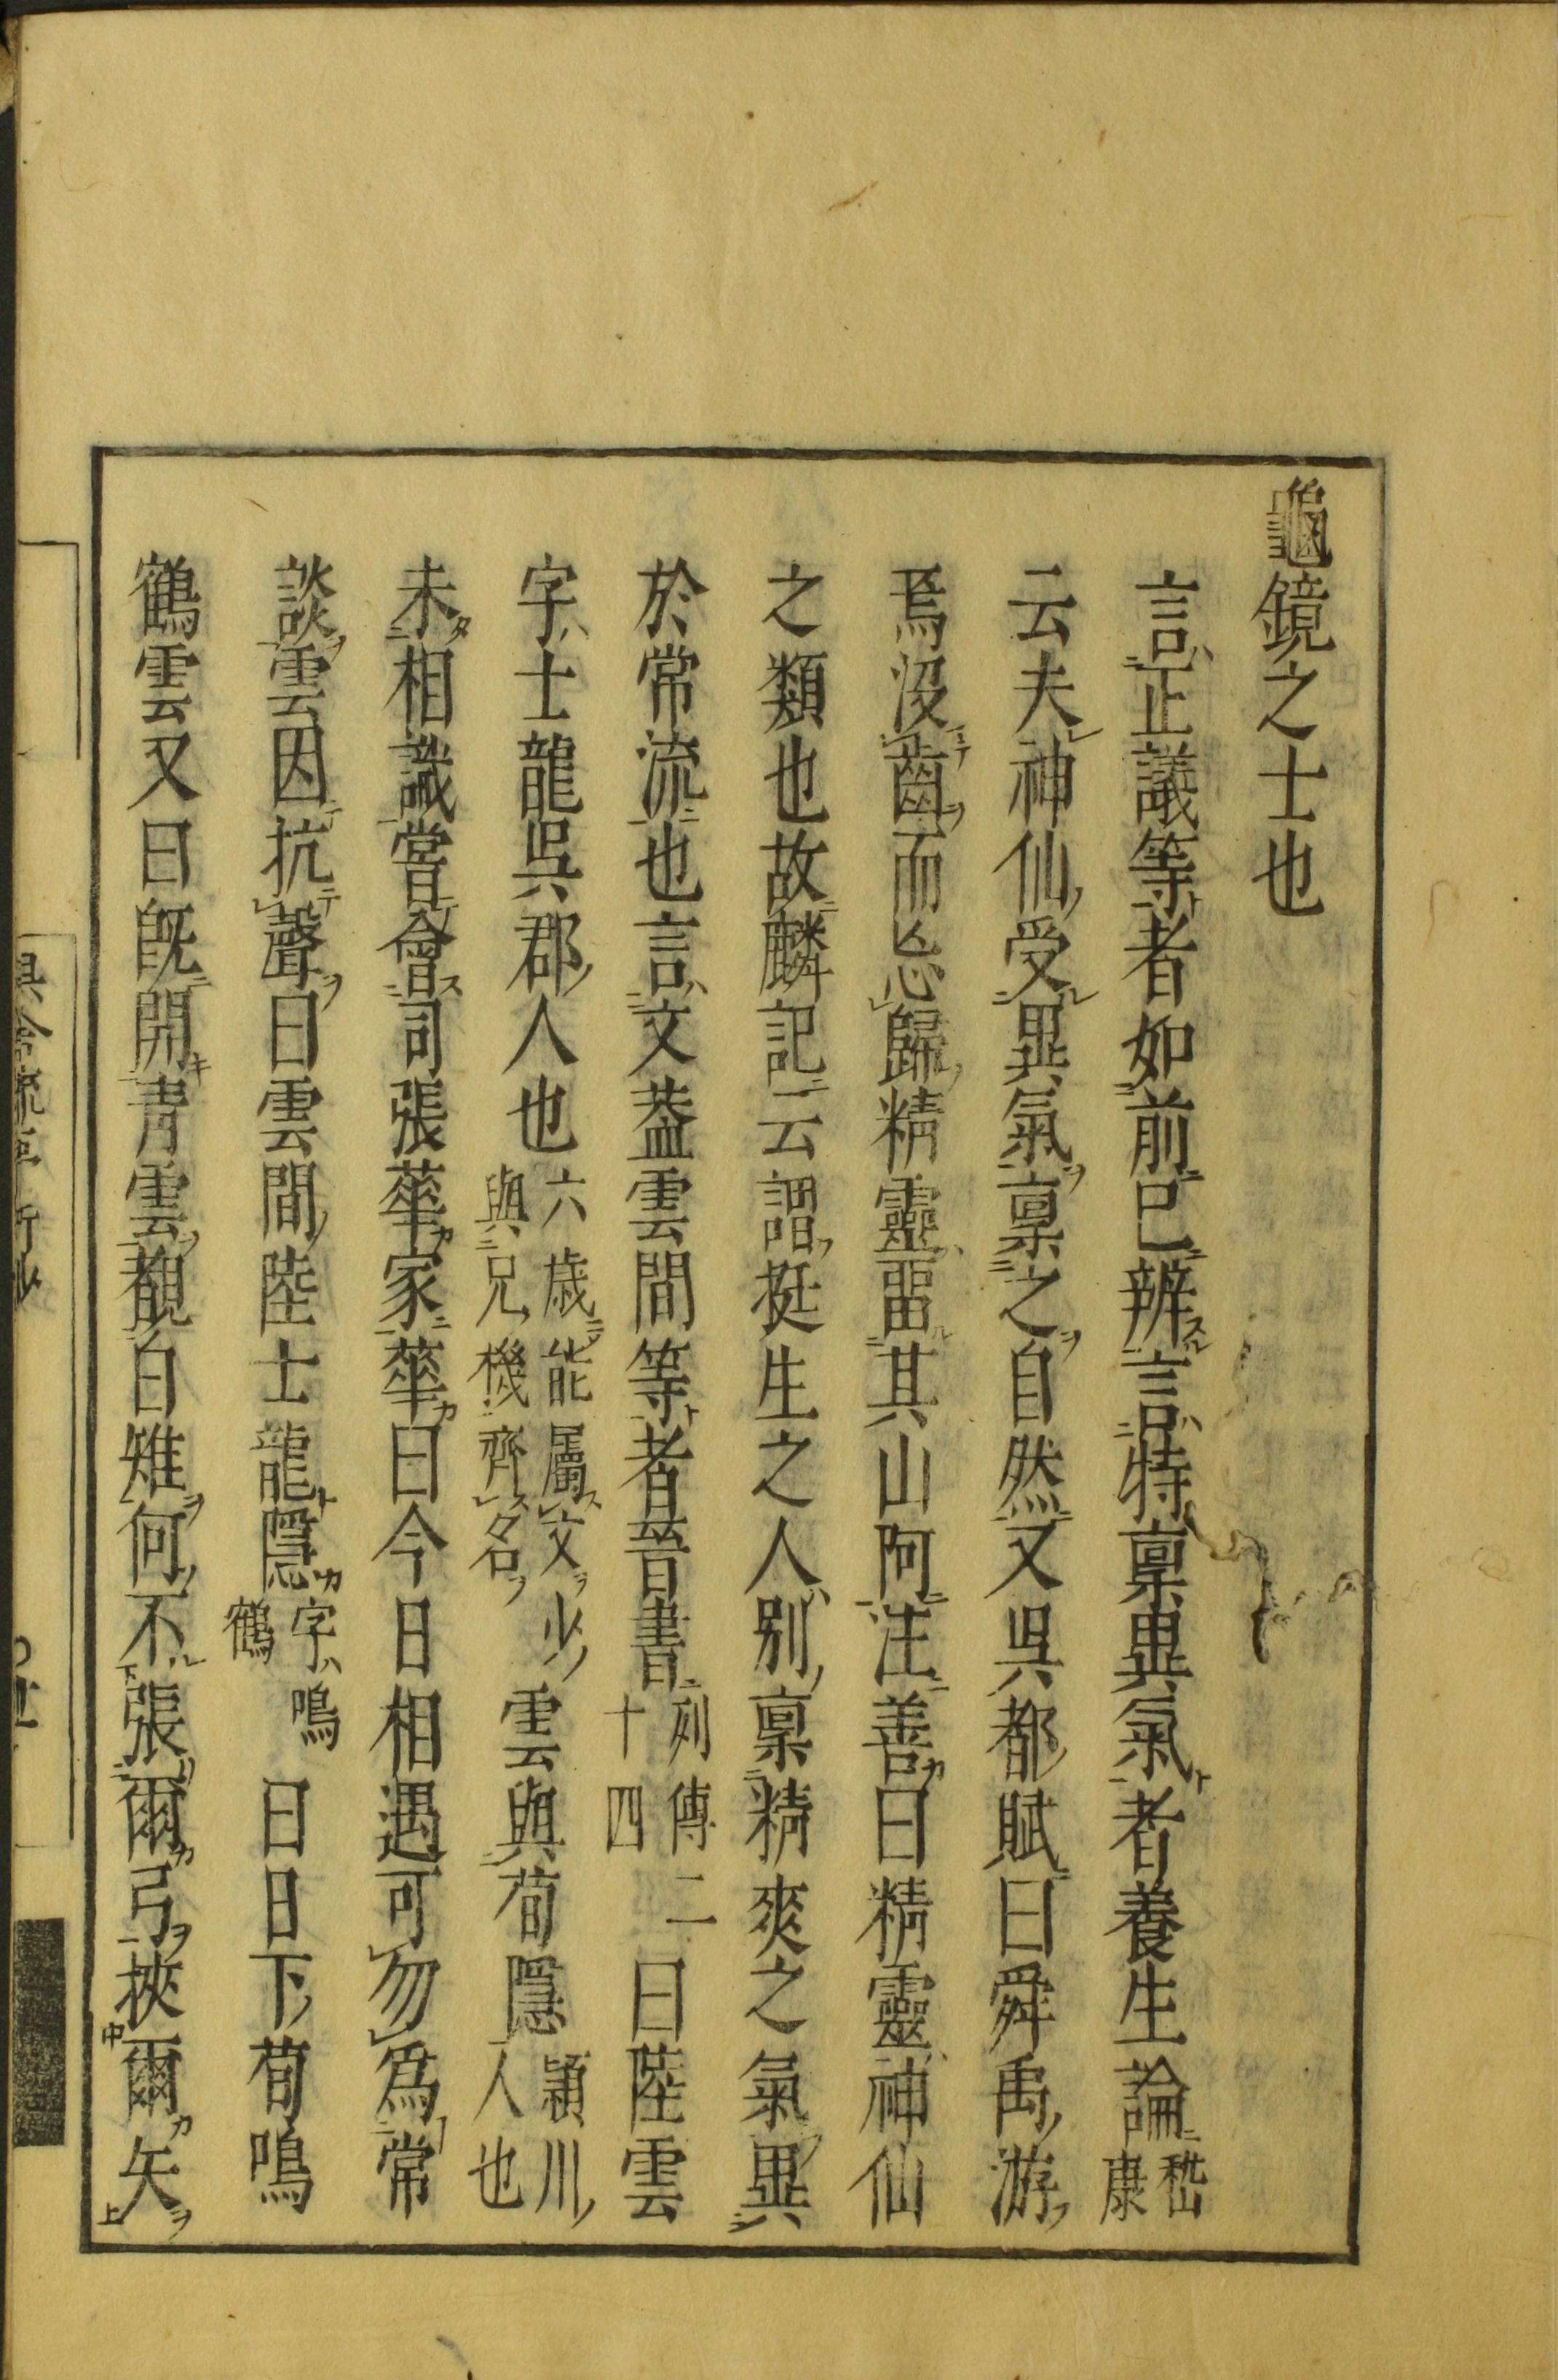 龜鏡之士也
言正議等者如前已辨言特禀異氣者養生論嵆康
云夫神仙受異氣禀之自然又吳都賦曰舜禹游
焉沒齒而忘歸精靈畱其山阿注善曰精靈神仙
之類也故麟記云謂挺生之人別禀精爽之氣異
於常流也言文葢雲間等者晉書列傳二十四曰陸雲
字士龍吳郡人也六歲能屬文少與兄機齊名雲與荀隱潁川人也
未相識嘗會司張華家華曰今日相遇可勿爲常
談雲因抗聲曰雲間陸士龍隱字鳴鶴曰日下荀鳴
鶴雲又曰旣開青雲覩白雉何不張爾弓挾爾矢